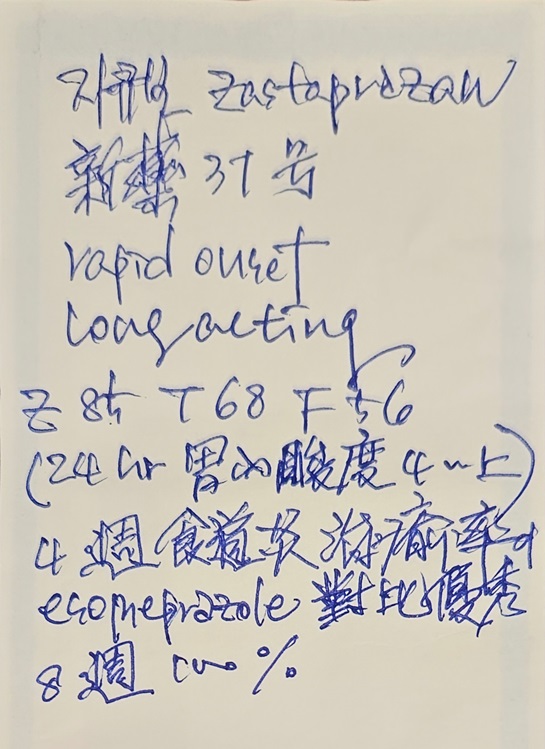 자큐보 Zastaprazan
新藥 37 号
rapid onset
long acting
Z 85 T 68 F 56
(24 hr 胃内酸度 4 以上)
4 週 食道炎 治癒率
esomeprazole 對比 優秀
8 週 100 %